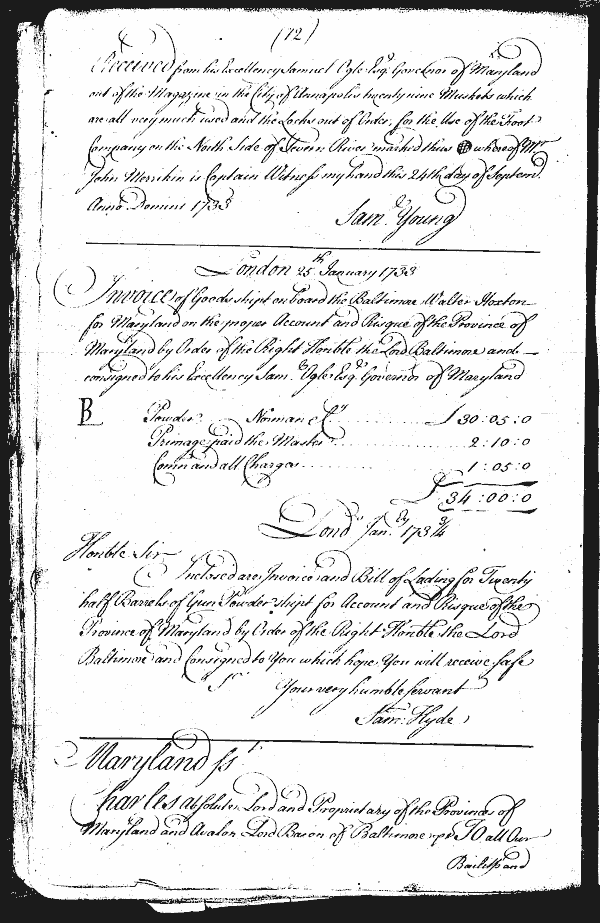 (72)
Received from his Excellency Samuel Ogle Esqr. Governor of Maryland
out of the Magazine in the City of Annapolis twenty nine Muskets which
are all very much used and the Locks out of Order, for the Use of the Foot
Company on the North Side of Severn River mark'd thus whereof Mr.
John Merrikin is Captain Witness my hand this 24th day of Septem.
Anno Domini 1733
Sam. Young
London 25th January 1733
Invoice of Goods shipt on board the Baltimore Walter Hoxton
for Maryland on the proper Account and Risque of the Province of
Maryland by Order of the Right Honble the Lord Baltimore and
consigned to his Excellency Sam. Ogle Esqr. Governor of Maryland
B Powder Norman £ 30:05:0
Primage paid the Master 2:10:0
Comn and all Charges 1:05:0
£ 34:00:0
Lond Jan.ry 1733/4
Honble Sir
Inclosed are Invoice and Bill of Lading for Twenty
half Barrels of Gun Powder shipt for Account and Risque of the
Province of Maryland by Order of the Right Honble the Lord
Baltimore and Consigned to You which hope You will receive safe
Your very humble servant
Sam: Hyde
Maryland ss
Charles absolute Lord and Proprietary of the Provinces of
Maryland and Avalon Lord Baron of Baltimore &c To all Our
Bailiffs and